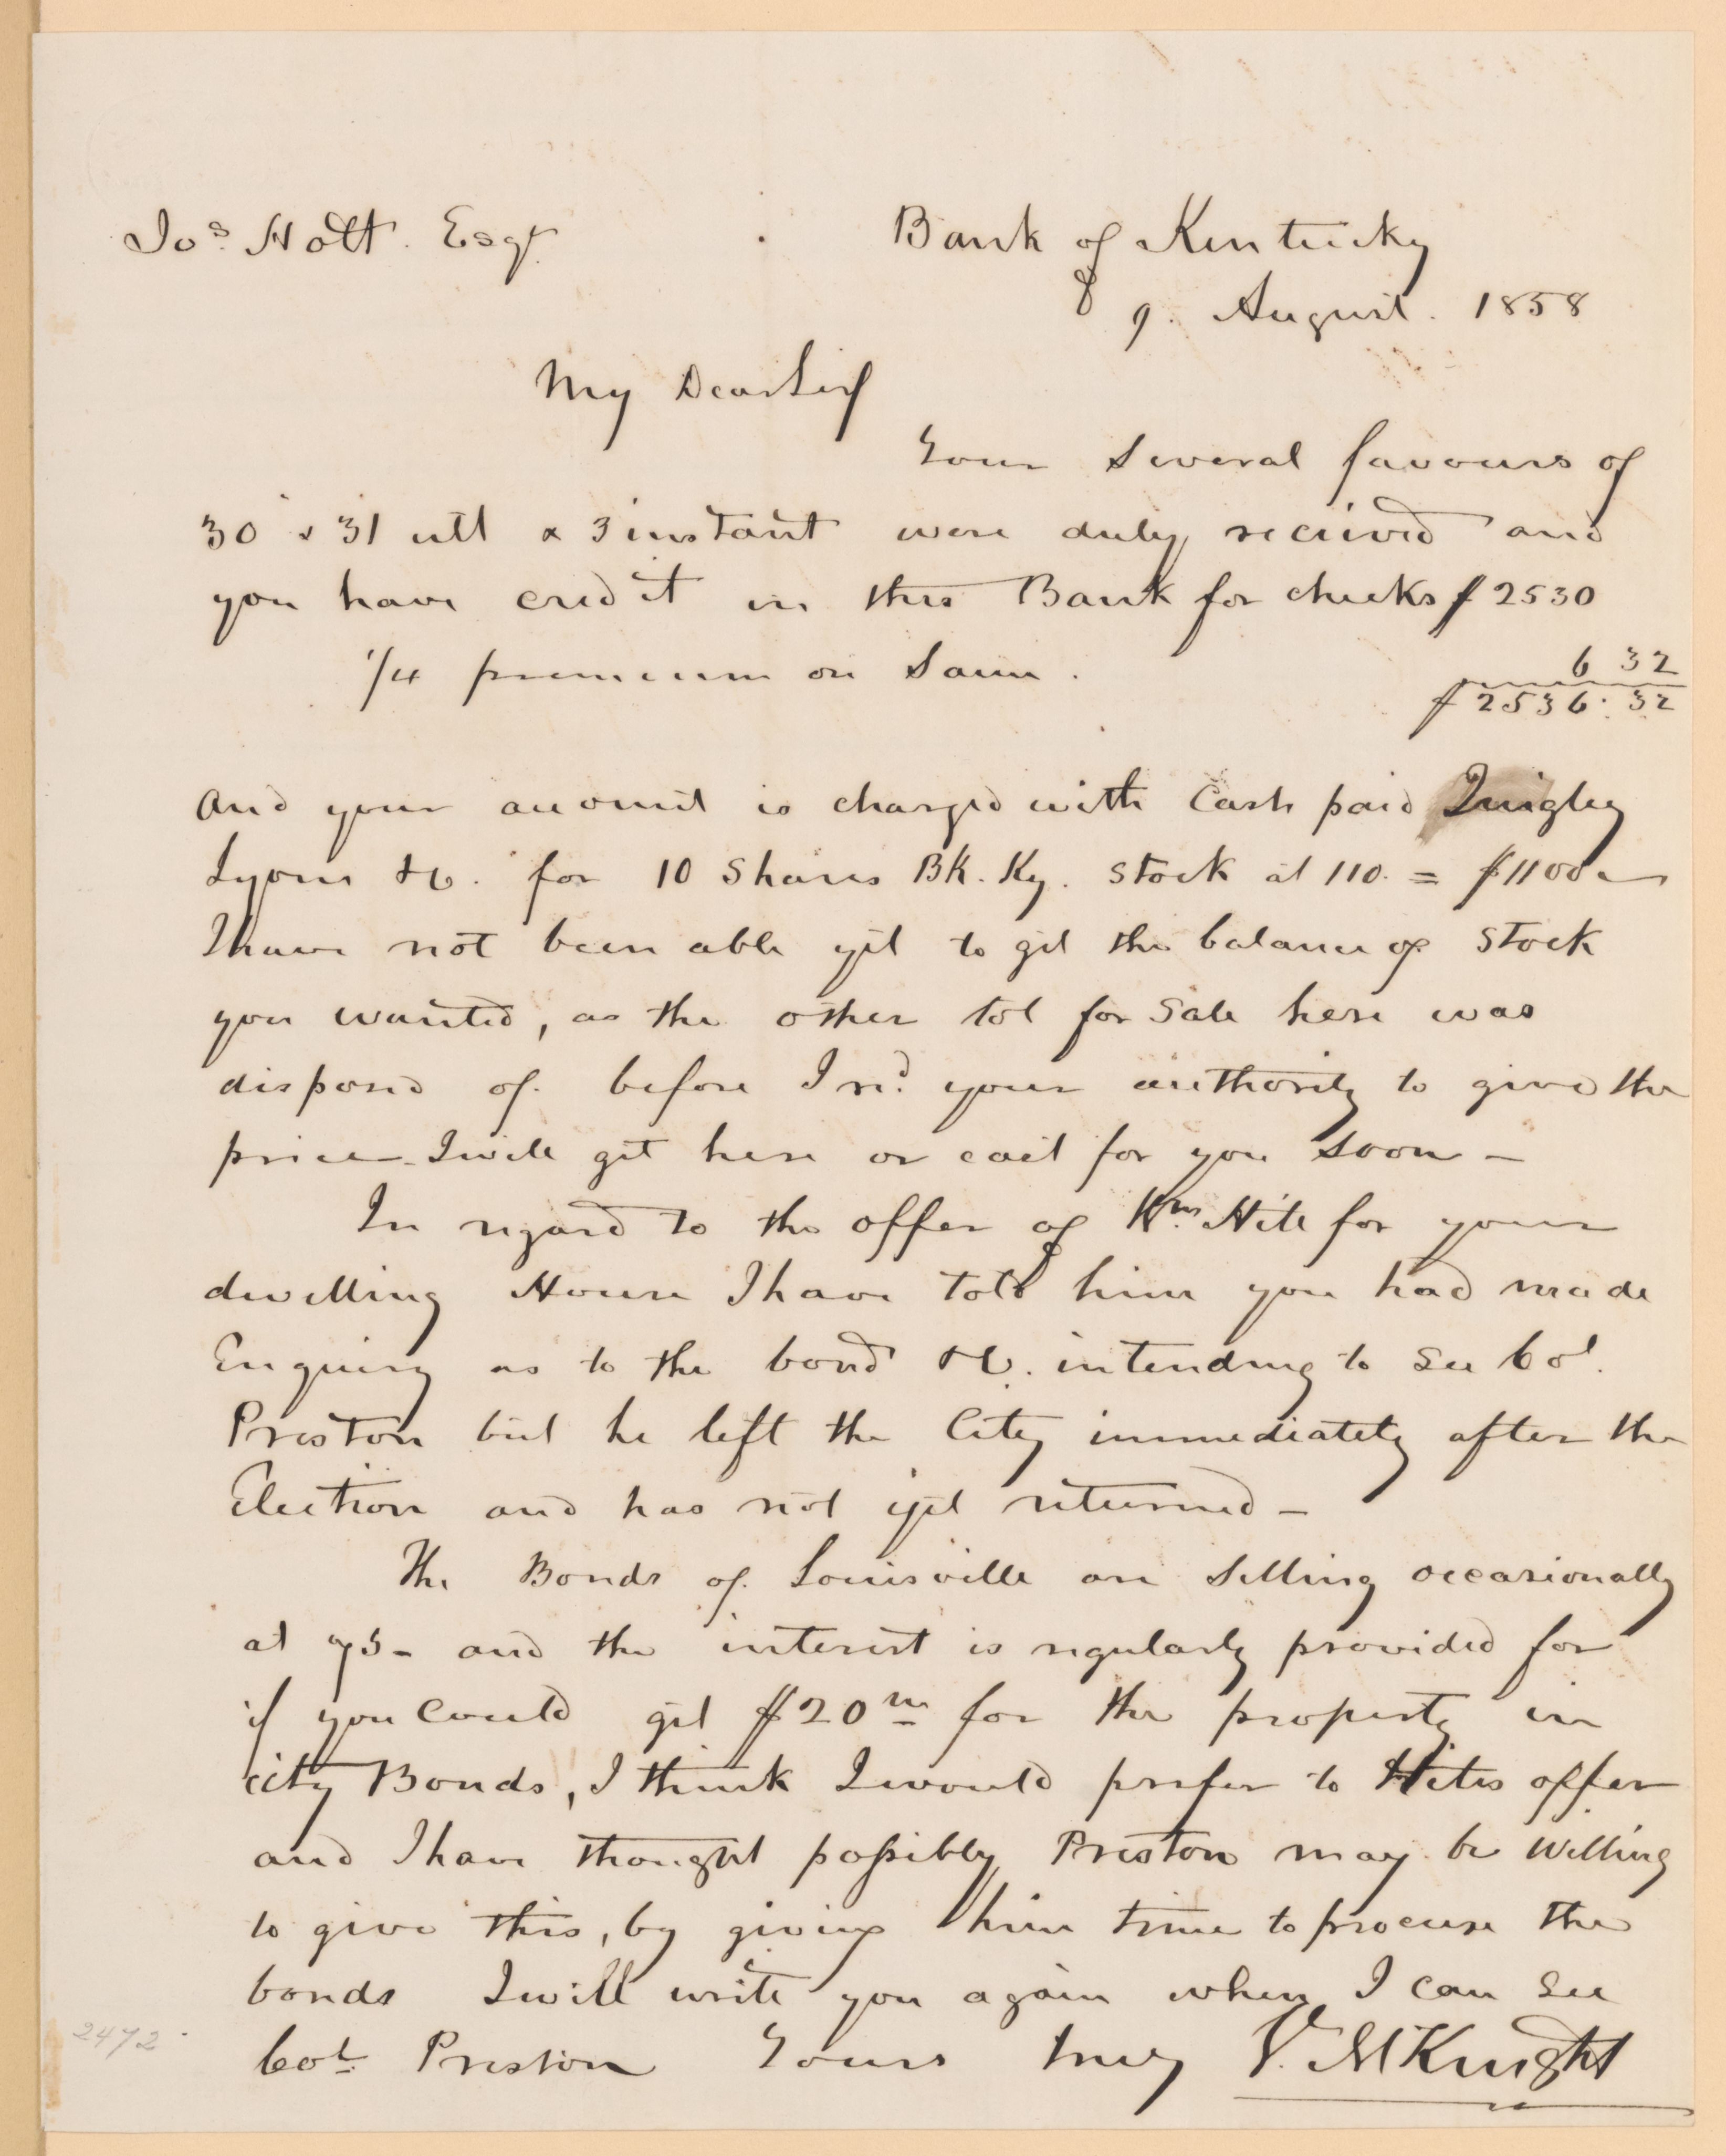 Jos. Holt. Esqr. Bank of Kentucky
9. August. 1858
My Dear Sir
Your several favours of
30 & 31 ult & 3 instant were duly recieved and
you have credit in this Bank for checks $2530
1/4 premium on same. 6 32
$2536.32
and your account is charged with Cash paid Quigley
Lyons &c. for 10 Shares Bk. Ky. stock at 110. = $1100 —
I have not been able yet to get the balance of stock
you wanted, as the other lot for sale here was
disposed of before I recd. your authority to give the
price — I will get here or east for you soon —
In regard to the offer of Wm. Hite for your
dwelling House I have told him you had made
Enquiry as to the bond &c. intending to see Col.
Preston but he left the City immediately after the
Election and has not yet returned —
The Bonds of Louisville are selling occasionally
at 75 — and the interest is regularly provided for
if you could get $20m for the property in
city Bonds, I think I would prefer to Hites offer
and I have thought possibly Preston may be willing
to give this, by giving him time to procure the
bonds I will write you again when I can see
Col. Preston Yours truly V. McKnight
2472